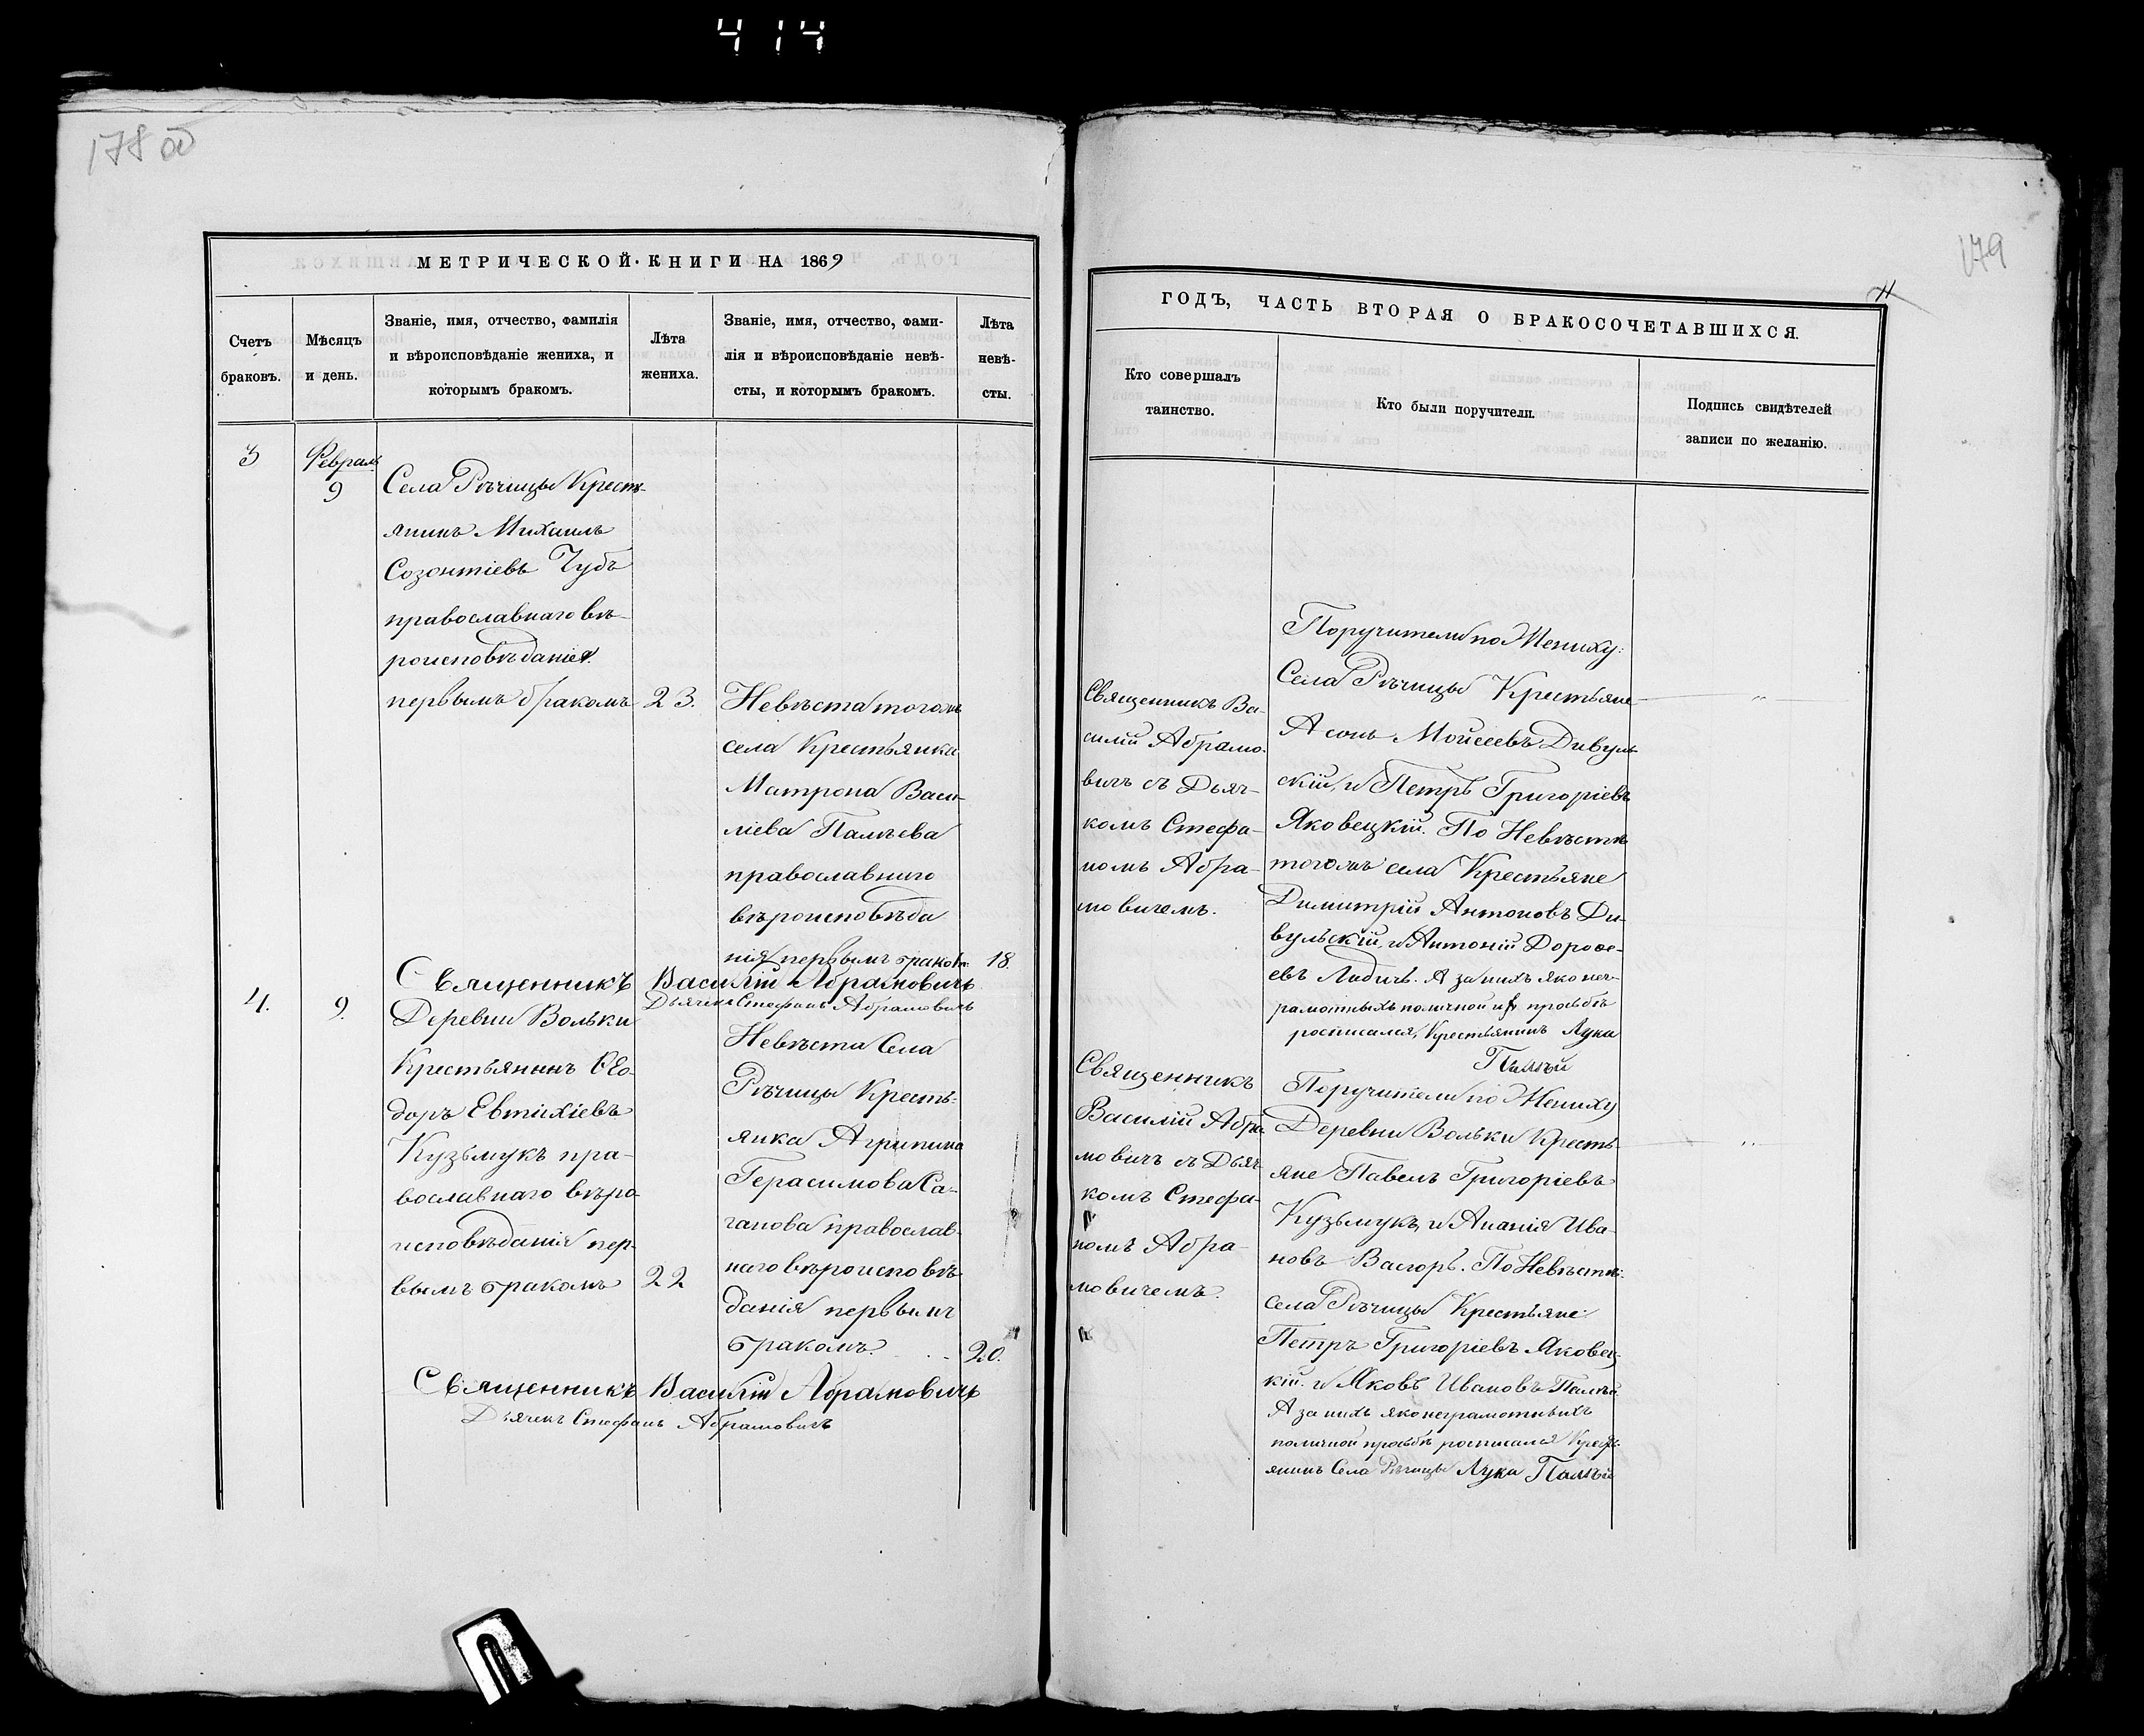 414
178 об
179
МЕТРИЧЕСКОЙ КНИГИ НА 1869
Счетъ
браковъ.
Мѣсяцъ
и день.
Званіе, имя, отчество, фамилія
и вѣроисповѣданіе жениха, и
которымъ бракомъ.
Лѣта
жениха.
Званіе, имя, отчество, фами-
лія и вѣроисповѣданіе невѣ-
сты, и которымъ бракомъ.
Лѣта
невѣ-
сты.
3
Февраль
9
Села Рѣчицы Кресть-
янинъ Михаилъ
Созонтіевъ Чубъ
православнаго вѣ-
роисповѣданія
первымъ бракомъ
23.
Невѣста тогожъ
села Крестьянка
Матрона Васи-
ліева Палѣева
православнаго
вѣроисповѣда
нія первымъ бракомъ
18.
Священникъ Василій Абрамовичъ
Дьячекъ Стефанъ Абрамовичъ
4.
9.
Деревни Вольки
Крестьянинъ Ѳео-
доръ Евтихіевъ
Кузьмукъ пра-
вославнаго вѣро-
исповѣданія пер-
вымъ бракомъ
22
Невѣста Села
Рѣчицы Кресть-
янка Агрипина
Герасимова Са-
ганова православ-
наго вѣроисповѣ-
данія первымъ
бракомъ.
20.
Священникъ Василій Абрамовичъ
Дьячекъ Стефанъ Абрамовичъ
ГОДЪ, ЧАСТЬ ВТОРАЯ О БРАКОСОЧЕТАВШИХСЯ.
Кто совершалъ
таинство.
Кто были поручители.
Подпись свидѣтелей
записи по желанію.
Священникъ Ва-
силій Абрамо-
вичъ съ Дьяч-
комъ Стефа-
номъ Абра-
мовичемъ.
Поручители по Жениху:
Села Рѣчицы Крестьяне
Асонъ Моисеевъ Дивуль-
скій, и Петръ Григоріевъ
Яковецкій. По Невѣстѣ
тогожъ села Крестьяне
Димитрій Антоновъ Ди-
вульскій, и Антоній Дороѳе-
евъ Лидичъ. А за нихъ яко нег-
рамотныхъ по личной ихъ прозьбѣ
росписался, Крестьянинъ Лука
Палѣй
Священникъ
Василій Абра-
мовичъ съ Дьяч-
комъ Стефа-
номъ Абра-
мовичемъ.
Поручители по Жениху
Деревни Вольки Кресть-
яне Павелъ Григоріевъ
Кузьмукъ, и Ананія Ива-
новъ. По Невѣстѣ:
села Рѣчицы Крестьяне:
Петръ Григоріевъ Яковец-
кій. и Яковъ Ивановъ Палѣй.
А за нихъ яко неграмотныхъ
по личной прозьбѣ росписался Кресть-
янинъ Села Рѣчицы Лука Палѣй